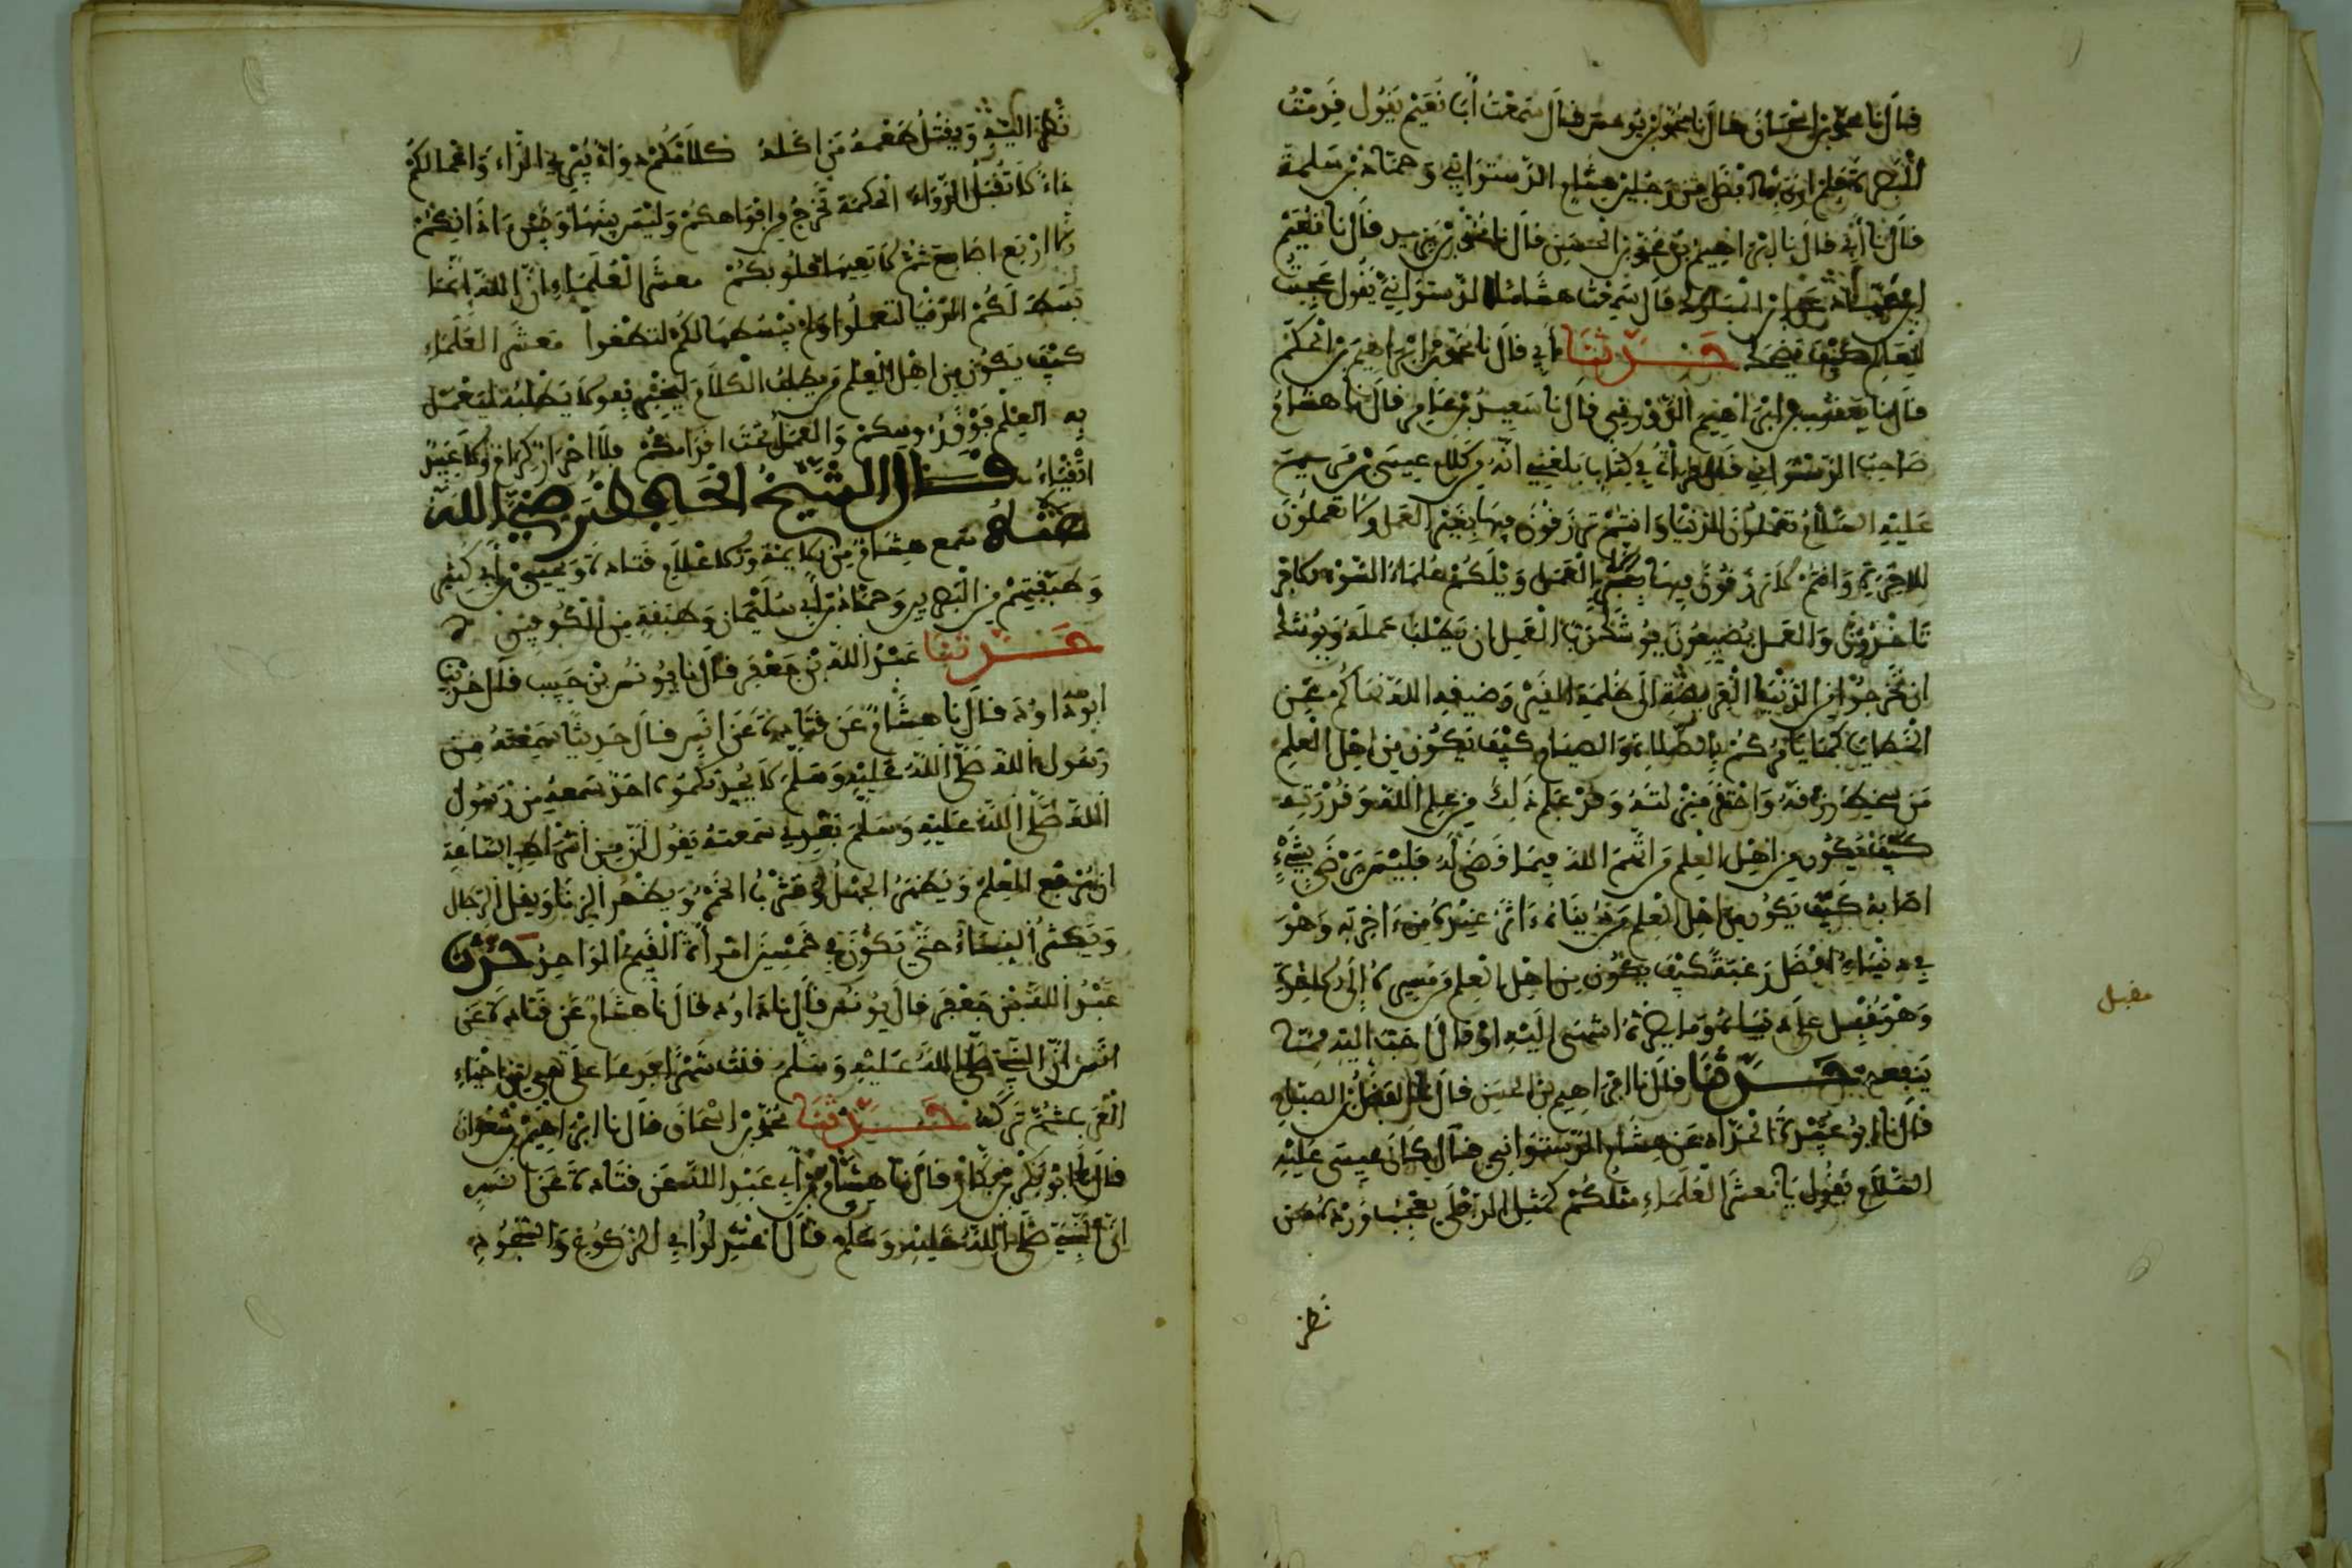 قال نا محمد بن إسحاق قال نا محمد بن يونس قال سمعت أبا نعيم يقول قدمت
البصرة فلم أر بها أفضل من رجلين هشام الدستوائي وحماد بن سلمة
قال نا أبي قال نا إبراهيم بن محمد بن الحسن قال نا محمد بن يزيد قال نا نعيم
قال سمعت هشاما الدستوائي يقول عجبت
للعالم كيف يضحك حدثنا أبي قال نا محمد بن إبراهيم بن الحكم
قال نا يعقوب بن إبراهيم الدورقي قال نا سعيد بن عامر قال نا هشام
صاحب الدستوائي قال قرأت في كتاب بلغني أنه من كلام عيسى بن مريم
عليه السلام تعملون للدنيا وأنتم ترزقون فيها بغير العمل ولا تعملون
للآخرة وأنتم لا ترزقون فيها إلا بالعمل ويلكم علماء السوء الأجر
تأخذون والعمل تضيعون يوشك رب العمل أن يطلب عمله ويوشك
أن تخرجوا من الدنيا العريضة إلى ظلمة القبر وضيقه الله نهاكم عن
الخطايا كما يأمركم بالصلاة والصيام كيف يكون من أهل العلم
من سخط رزقه واحتقر منزلته وقد علم ذلك من علم الله وقدرته
كيف يكون من أهل العلم من اتهم الله فيما قضى له فليس يرضى بشيء
أصابه كيف يكون من أهل العلم من دنياه آثر عنده من آخرته وهو
في دنياه أفضل رغبة كيف يكون من أهل العلم من مسيره إلى الآخرة
وهو مقبل على دنياه وما يضره أشهى إليه أو قال أحب إليه مما
ينفعه حدثنا قال نا إبراهيم بن الحسن قال نا الفضل بن الصباح
قال نا أبو عبيدة الحداد عن هشام الدستوائي قال كان عيسى عليه
السلام يقول يا معشر العلماء مثلكم كمثل الدفلى يعجب ورده من
نظر
مقبل
نظر إليه ويقتل طعمه من أكله كلامكم دواء يبرئ الداء وأعمالكم
داء لا تقبل الدواء الحكمة تخرج من أفواهكم وليس بينها وبين آذانكم
إلا أربع أصابع ثم لا تعيها قلوبكم معشر العلماء إن الله إنما
بسط لكم الدنيا لتعملوا ولم يبسطها لكم لتطغوا معشر العلماء
كيف يكون من أهل العلم من يطلب الكلام ليخبر به ولا يطلبه ليعمل
به العلم فوق رءوسكم والعمل تحت أقدامكم فلا أحرار كرام ولا عبيد
أتقياء قال الشيخ الحافظ رضي الله
عنه سمع هشام من الأئمة والأعلام قتادة ويحيى بن أبي كثير
وطبقتهم من البصريين وحماد بن أبي سليمان وطبقته من الكوفيين
حدثنا عبد الله بن جعفر قال نا يونس بن حبيب قال حدثنا
أبو داود قال نا هشام عن قتادة عن أنس قال حديثا سمعته من
رسول الله صلى الله عليه وسلم لا يحدثكموه أحد سمعه من رسول
الله صلى الله عليه وسلم بعدي سمعته يقول إن من أشراط الساعة
أن يرفع العلم ويظهر الجهل وتشرب الخمر ويظهر الزنا ويقل الرجال
ويكثر النساء حتى يكون في خمسين امرأة القيم الواحد حدثنا
عبد الله بن جعفر قال نا يونس قال نا أبو داود قال نا هشام عن قتادة عن
أنس أن النبي صلى الله عليه وسلم قنت شهرا يدعو على حي من أحياء
العرب ثم تركه حدثنا محمد بن إسحاق قال نا إبراهيم بن سعدان
قال نا بكر بن بكار قال نا هشام بن أبي عبد الله عن قتادة عن أنس
أن النبي صلى الله عليه وسلم قال اعتدلوا في الركوع والسجود